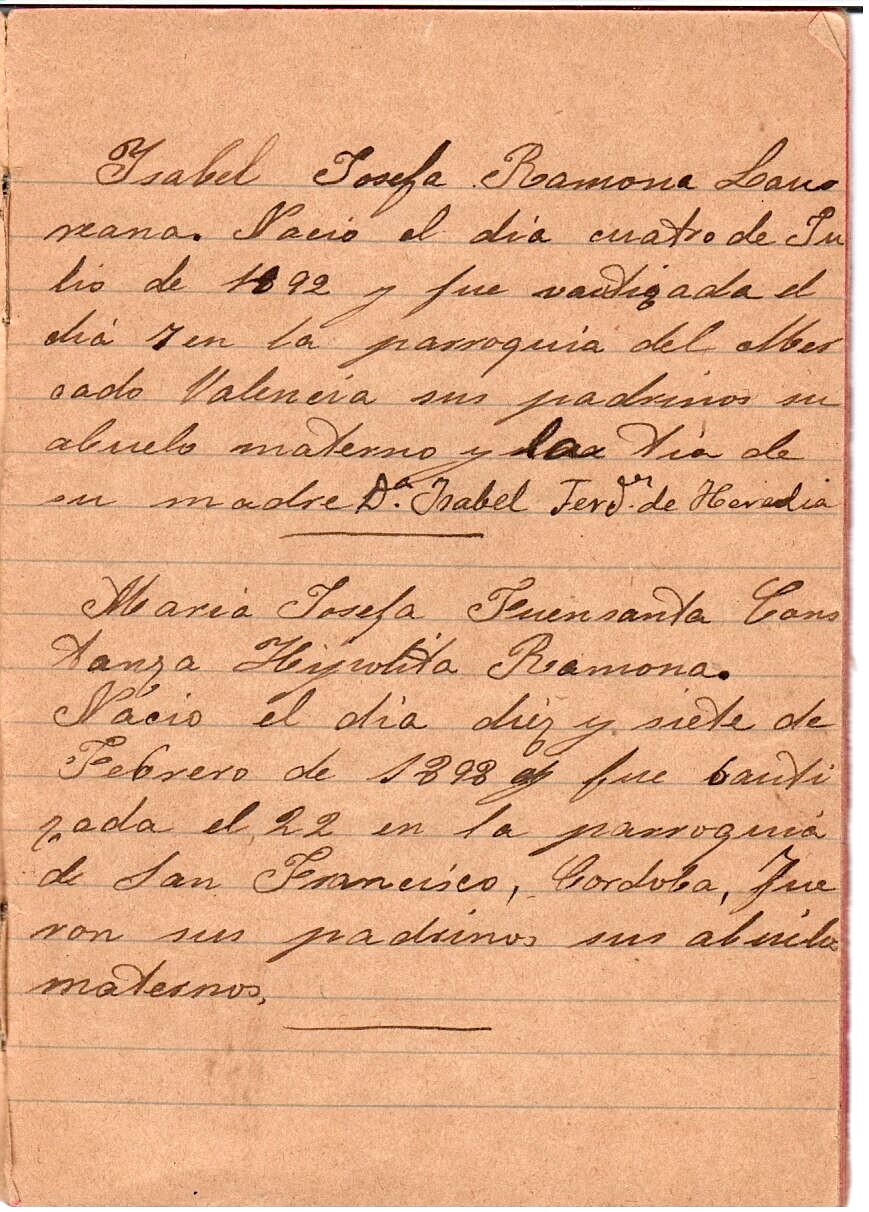 Isabel Josefa Ramona Lau
reana. Nacio el dia cuatro de Ju
lio de 1892 y fue vautizada el
diá 7 en la parroquia del Mer
cado Valencia sus padrinos su
abuelo materno y la tia de
su madre Dª. Isabel Ferz. de Heredia
Maria Josefa Fuensanta Cons
tanza Hipolita Ramona.
Nacio el dia diez y siete de
Febrero de 1898 y fue bauti
zada el 22 en la parroquia
de San Francisco, Cordoba, Fue
ron sus padrinos sus abuelos
maternos.